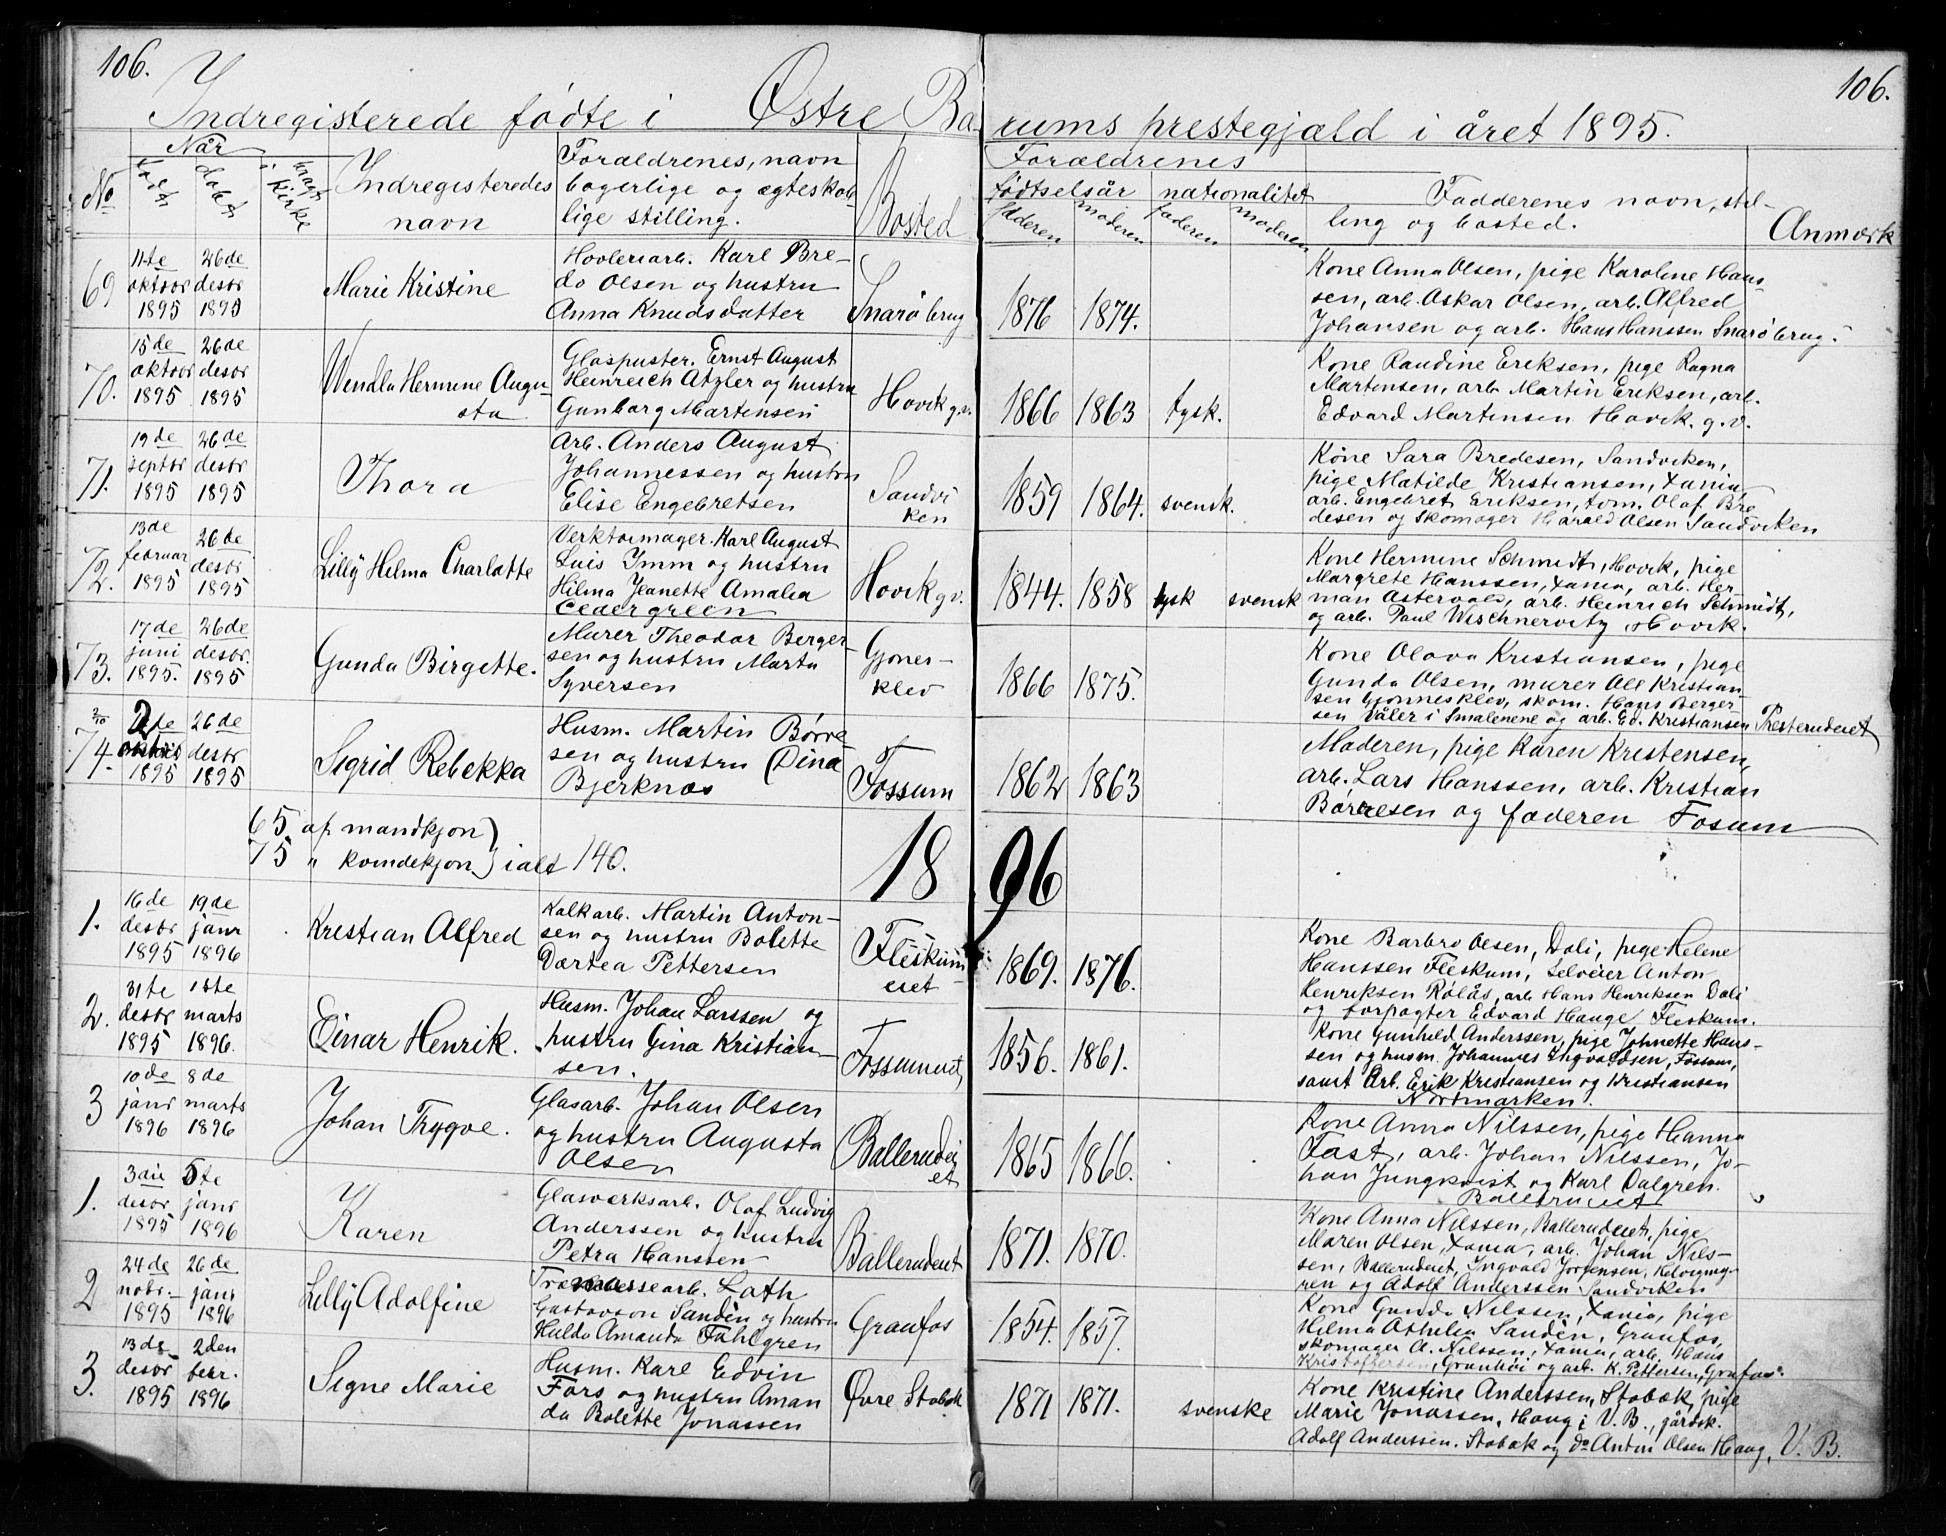 106.
106.
Indregisterede fødte i Østre Bærums prestegjæld i året 1895.
Når
No
født
døbt
bragt i kirke
Indregisteredes
navn
Forældrenes, navn
bogerlige og ægteskab-
lige stilling.
Bosted
Forældrenes
fødtselsår
nationalitet
faderen
moderen
faderen
moderen
Fadderenes navn, stil-
ling og bosted.
Anmærk
69
11te
oktobr
1895
26de
desbr
1895
Marie Kristine
Høvleriarb. Karl Bre-
do Olsen og hustru
Anna Knudsdatter
Snarøbrug
1876
1874.
Kone Anna Olsen, pige Karolene Hans-
sen, arb. Oskar Olsen, arb. Alfred
Johansen og arb. Hans Hanssen Snarøbrug.
70.
15de
oktobr
1895
26de
desbr
1895
Wendla Hermine Augu-
sta
Glaspuster. Ernst August
Heinreich Atzler og hustru
Gunborg Martensen
Høvik g.v.
1866
1863
tysk.
Kone Randine Eriksen, pige Ragna
Martensen, arb Martin Eriksen, arb.
Edvard Martensen Høvik. g.v.
71.
19de
septbr
1895
26de
desbr
1895
Thora
Arb. Anders August
Johannessen og hustru
Elise Engebretsen
Sandvi
ken
1859
1864.
svensk.
Kone Sara Bredesen, Sandviken,
pige Matilde Kristiansen, Xania,
arb. Engebret Eriksen, tom. Olaf Bre
desen og Skomager Harald Olsen Sandviken
72.
13de
februar
1895
26de
desbr
1895
Lilly Helma Charlotte
Verktøimager. Karl August
Luis Imm og hustru
Hilma Jeanette Amalia
Cedergreen
Høvik g.v.
1844.
1858
tysk
svensk
Kone Hermine Schmidt, Høvik, pige
Margrete Hanssen, Xania, arb. Her-
man Ostervold, arb. Heinrich Schmidt,
og arb. Paul Wischnervitz, Høvik.
73.
17de
juni
1895.
26de
desbr.
1895
Gunda Birgette.
Murer Theodor Berger-
sen og hustru Marta
Syversen
Gjønes-
klev
1866
1875.
Kone Olava Kristiansen, pige
Gunda Olsen, murer Ole Kristian-
sen Gjønnesklev, skom. Hans Berger-
sen Våler i Smålenene og arb. Ed. Kristiansen Presterudeiet
2/10
74.
2
te
1895
26de
desbr
1895
Sigrid Rebekka
Husm. Martin Børre-
sen og hustru Dina
Bjerknæs
Fossum
1862
1863
Moderen, pige Karen Kristensen,
arb. Lars Hanssen, arb. Kristian
Børresen og faderen Fosum
65 af mandkjøn)
75 " kvindekjøn) ialt 140.
1896
1.
16de
desbr
1895
19de
janr
1896
Kristian Alfred
Kalkarb. Martin Anton-
sen og hustru Bolette
Dortea Pettersen
Fleskum
eiet
1869.
1876.
Kone Barbro Olsen, Dali, pige Helene
Hanssen Fleskum, Selveier Anton
Henriksen Rølås, arb Hans Henriksen Dali
og forpagter Edvard Hauge Fleskum.
2.
31te
desbr
1895
18te
marts
1896.
Einar Henrik.
Husm. Johan Larssen og
hustru Gina Kristian-
sen.
Fossumeiet,
1856.
1861.
Kone Gunhild Anderssen, pige Johnette Hans-
sen og husm. Johannes Ingvaldsen, Fossum,
samt Arb. Erik Kristiansen og Kristiansen
Nordmarken.
3
10de
janr
1896
8de
marts
1896
Johan Trygve.
Glasarb. Johan Olsen
og hustru Augusta
Olsen
Ballerudei
et
1865
1866.
Kone Anna Nilssen, pige Hanna
Fast, arb. Johan Nilssen, Jo-
han Jungkvist og Karl Dalgren.
Ballerudeiet
1.
3die
desbr
1895
5te
janr
1896
Karen
Glasverksarb. Olaf Ludvig
Anderssen og hustru
Petra Hanssen
Ballerudeiet
1871.
1870.
Kone Anna Nilssen, Ballerudeiet, pige
Maren Olsen, Xania, arb. Johan Nils-
sen, Ballerudeiet, Ingvald Jørgensen,
ren og Adolf Anderssen Sandviken
2
24de
nobr.
1895
26de
janr
1896
Lilly Adolfine
Træmassearb. Lath
Gustavson Sandèn og hustru
Hulda Amanda Fahlgren
Granfos
1854.
1857.
Kone Gunda Nilssen, Xania, pige
Hilma Athilia Sandèn, Granfos,
skomager A. Nilssen, Xania, arb. Hans
Kristoffersen, Granhøi og arb. K. Pettersen, Granfos
3.
13de
desbr
1895
2den
febr.
1896
Signe Marie
Husm. Karl Edvin
Fors og hustru Aman
da Bolette Jonassen
Øvre Stabæk
1871
1871.
svenske
Kone Kristine Anderssen, Stabæk, pige
Marie Jonassen, Haug i V.B., gårdbk.
Adolf Anderssen. Stabæk og do Anton Olsen Haug, V. B.